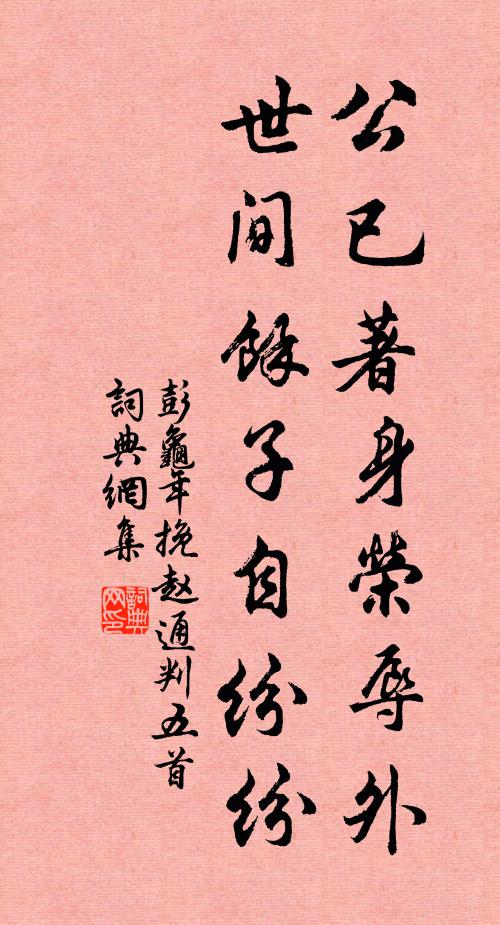 公已著身榮辱外
世间餘子自纷纷
彭龜年挽赵通判五首
詞典網集
詞典网印